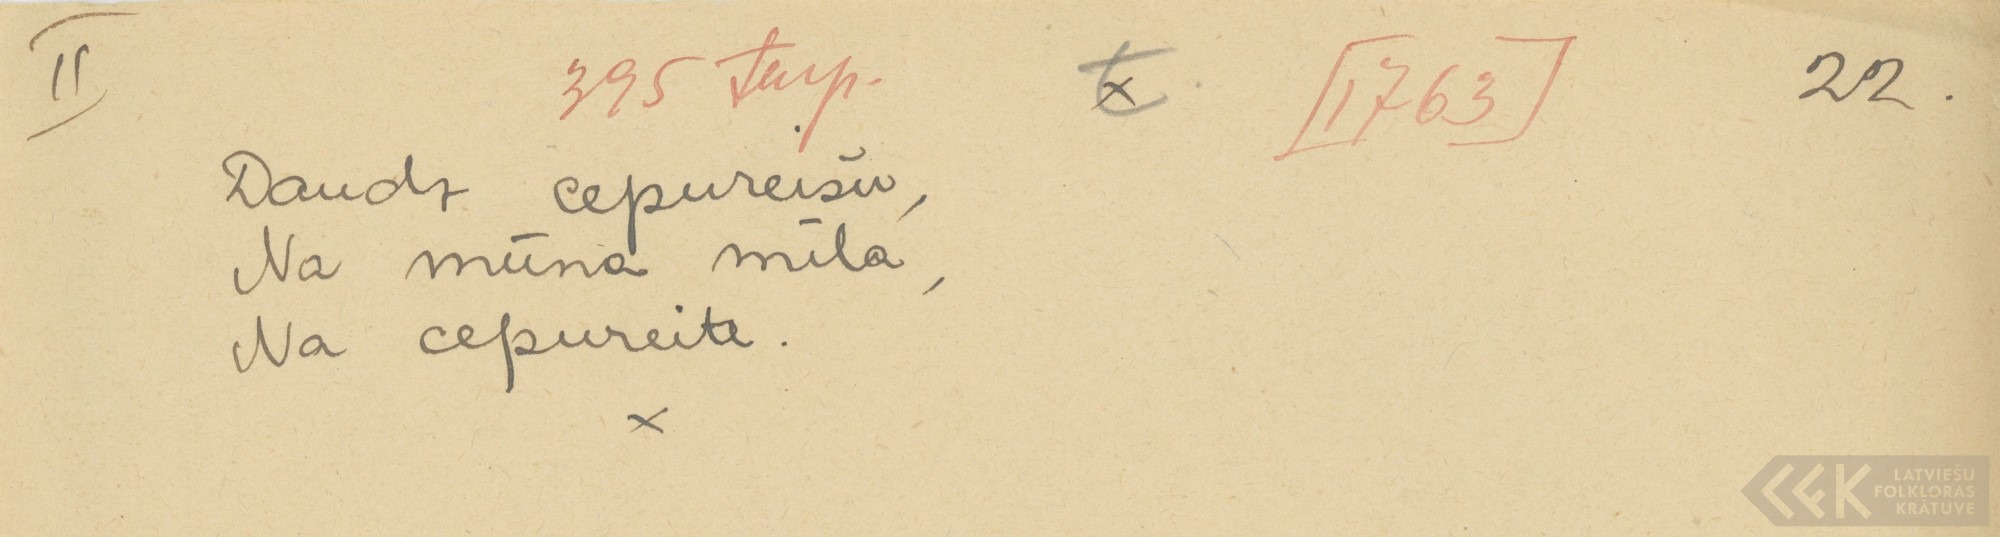 II 395 turp. t x [1763] 22.
Daudz cepureišu,
Na mūna mīla,
Na cepureite.
x
LATVIEŠU
FOLKLORAS
KRĀTUVE